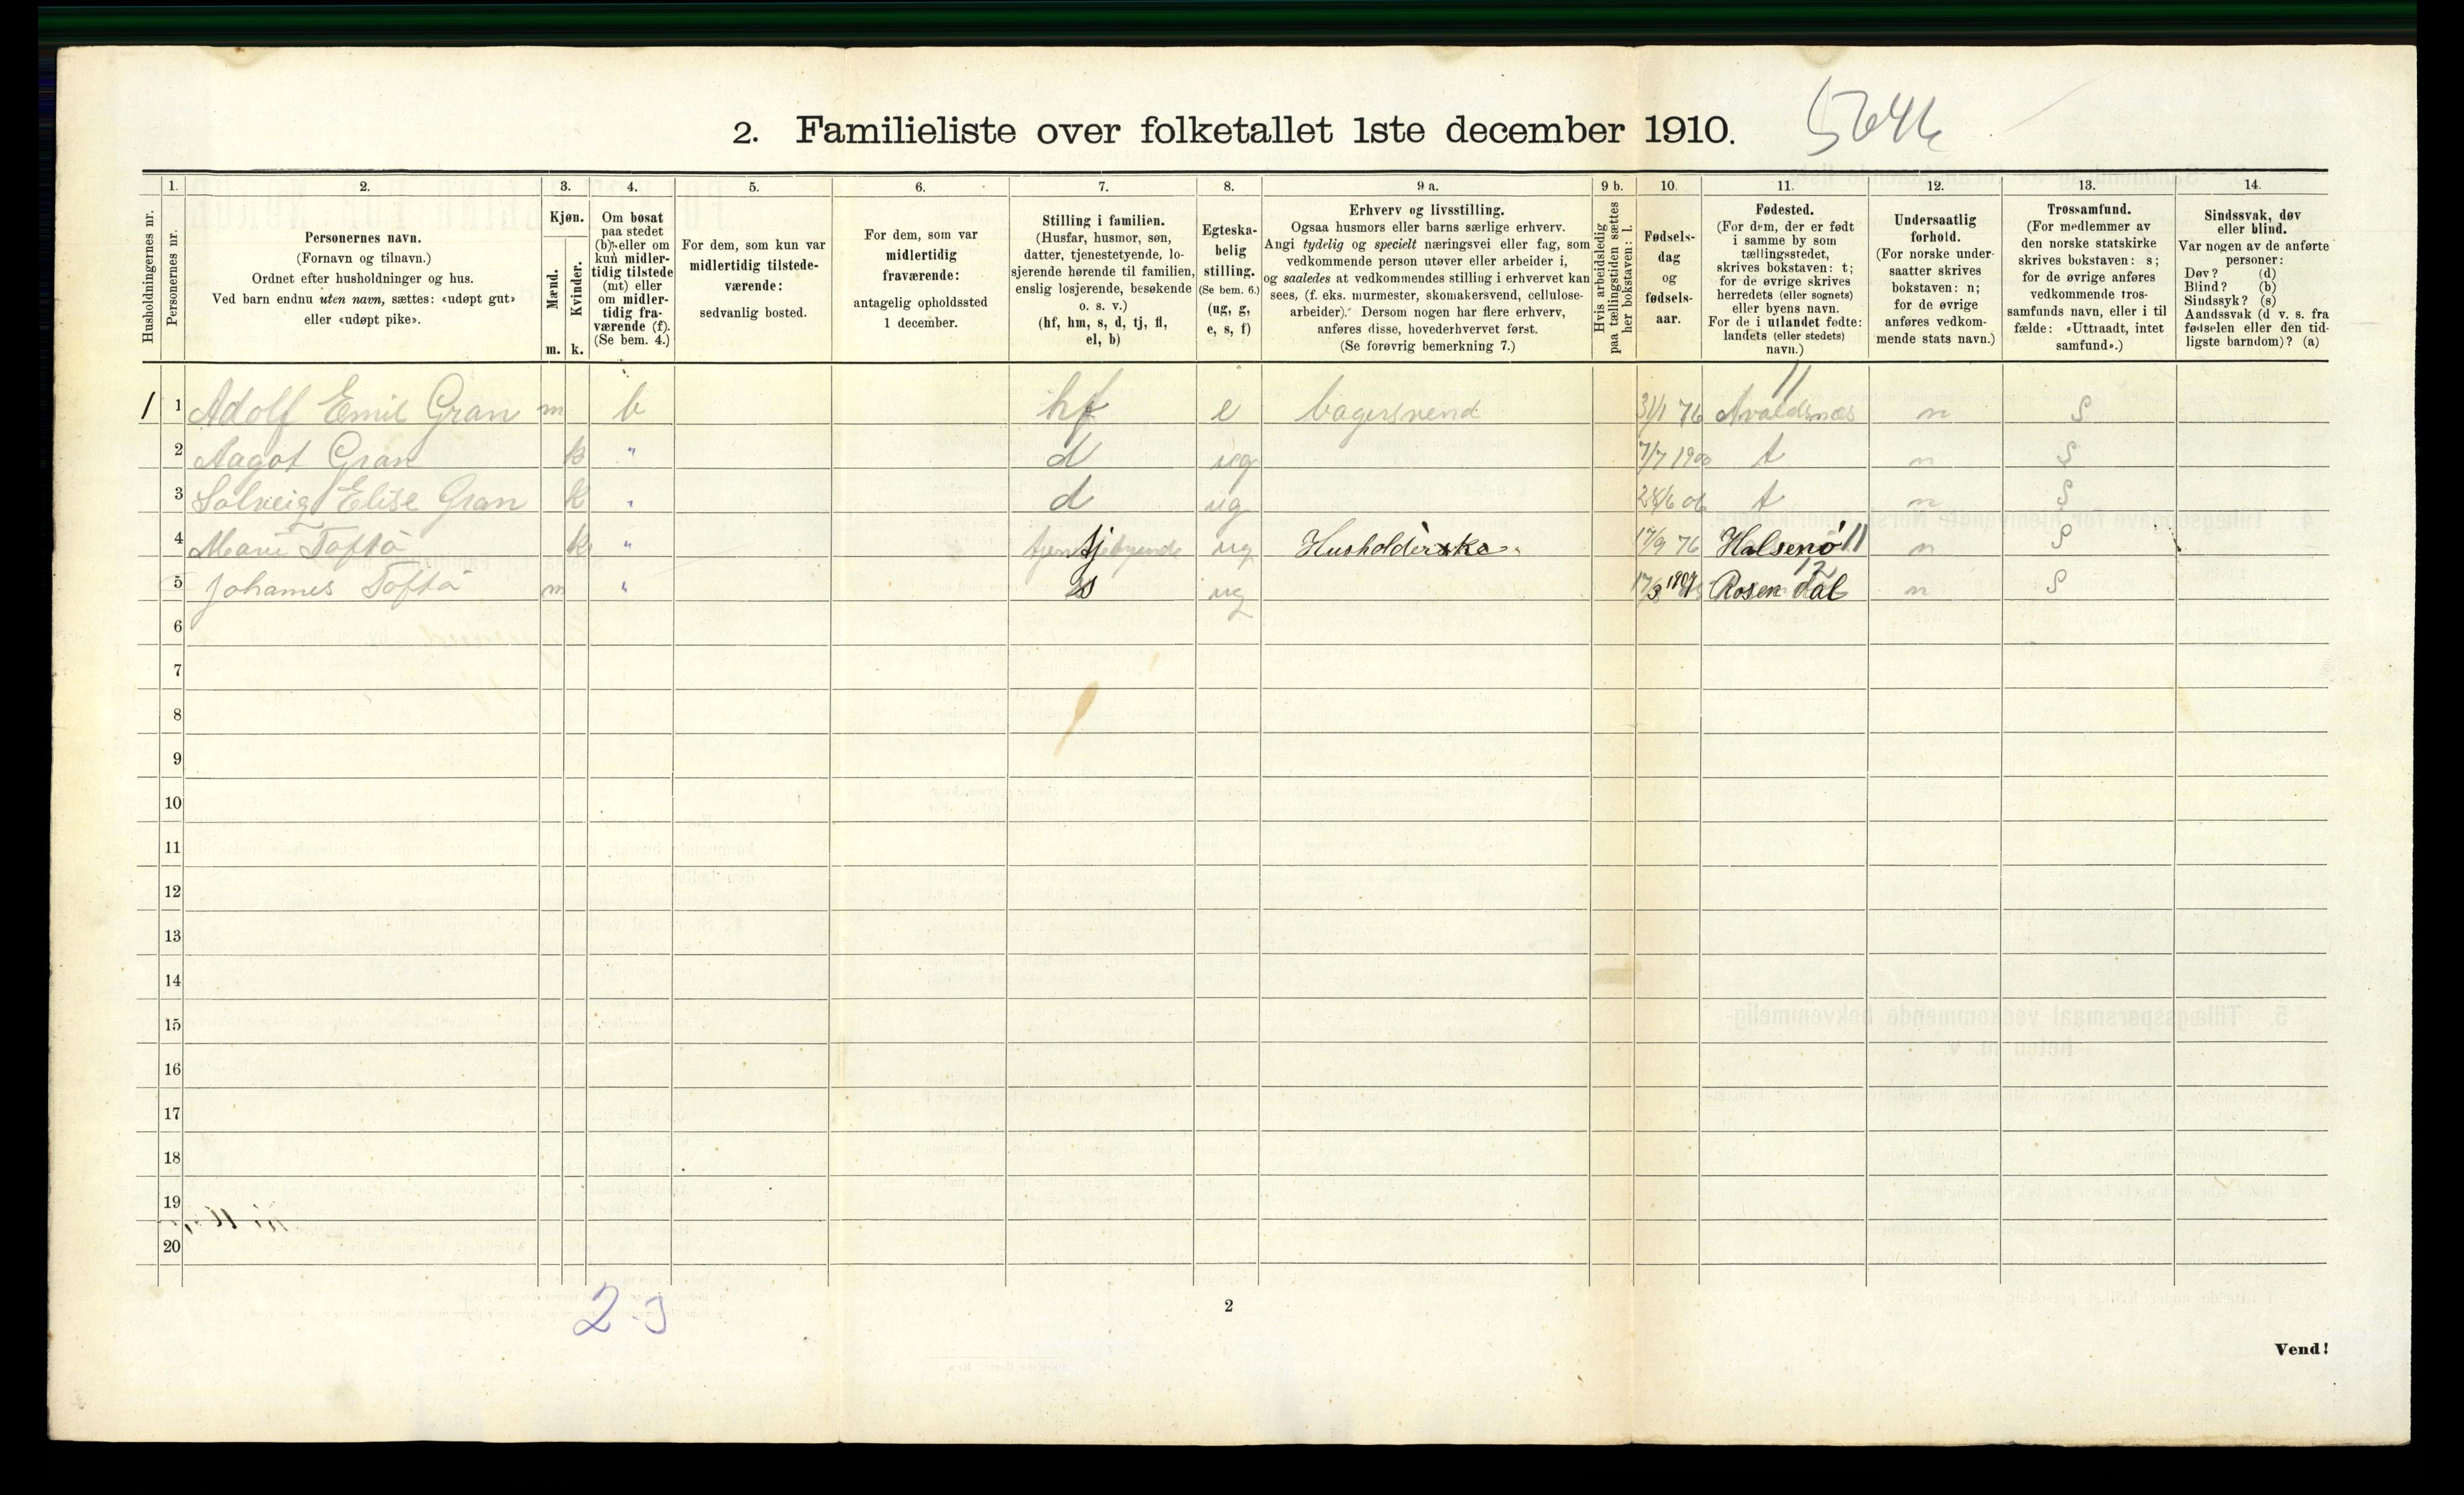 2. Familieliste over folketallet 1ste december 1910.
Husholdningernes nr.
1.
Personernes nr.
2.
Personernes navn.
(Fornavn og tilnavn.)
Ordnet efter husholdninger og hus.
Ved barn endnu uten navn, sættes: «udøpt gut»
eller «udøpt pike».
3.
Kjøn.
Mænd.
Kvinder.
m. k.
4.
Om bosat
paa stedet
(b) eller om
kun midler-
tidig tilstede
(mt) eller
om midler-
tidig fra-
værende (f).
(Se bem. 4.)
5.
For dem, som kun var
midlertidig tilstede-
værende:
sedvanlig bosted.
6.
For dem, som var
midlertidig
fraværende:
antagelig opholdssted
1 december.
7.
Stilling i familien.
(Husfar, husmor, søn,
datter, tjenestetyende, lo-
sjerende hørende til familien,
enslig losjerende, besøkende
o. s. v.)
(hf, hm, s, d, tj, fl,
el, b)
8.
Egteska-
belig
stilling.
(Se bem. 6.)
(ug, g,
e, s, f)
9 a.
Erhverv og livsstilling.
Ogsaa husmors eller barns særlige erhverv.
Angi tydelig og specielt næringsvei eller fag, som
vedkommende person utøver eller arbeider i,
og saaledes at vedkommendes stilling i erhvervet kan
sees, (f. eks. murmester, skomakersvend, cellulose-
arbeider). Dersom nogen har flere erhverv,
anføres disse, hovederhvervet først.
(Se forøvrig bemerkning 7.)
9 b.
Hvis arbeidsledig
paa tællingstiden sættes
her bokstaven: l.
10.
Fødsels-
dag
og
fødsels-
aar.
11.
Fødested.
(For dem, der er født
i samme by som
tællingsstedet,
skrives bokstaven: t;
for de øvrige skrives
herredets (eller sognets)
eller byens navn.
For de i utlandet fødte:
landets (eller stedets)
navn.)
12.
Undersaatlig
forhold.
(For norske under-
saatter skrives
bokstaven: n;
for de øvrige
anføres vedkom-
mende stats navn.)
13.
Trossamfund.
(For medlemmer av
den norske statskirke
skrives bokstaven: s;
for de øvrige anføres
vedkommende tros-
samfunds navn, eller i til
fælde: «Uttraadt, intet
samfund».)
14.
Sindssvak, døv
eller blind.
Var nogen av de anførte
personer:
Døv? (d)
Blind? (b)
Sindssyk? (s)
Aandssvak (d v. s. fra
fødselen eller den tid-
ligste barndom)? (a)
11
1 1 Adolf Emil Gran m b hf e bagersvend 31/1 76 Avaldsnæs n S
2 Aagot Gran k " d ug 7/7 1900 t n S
3 Solveig Elise Gran k " d ug 28/6 06 t n S
4 Marie Toftø k " tj ug Husholderske 17/9 76 Halsenö 11 n S
12
5 Johannes Toftø m " s ug 17/3 1907 Rosendal n S
6
7
8
9
10
11
12
13
14
15
16
17
18
19
20
2
Vend!